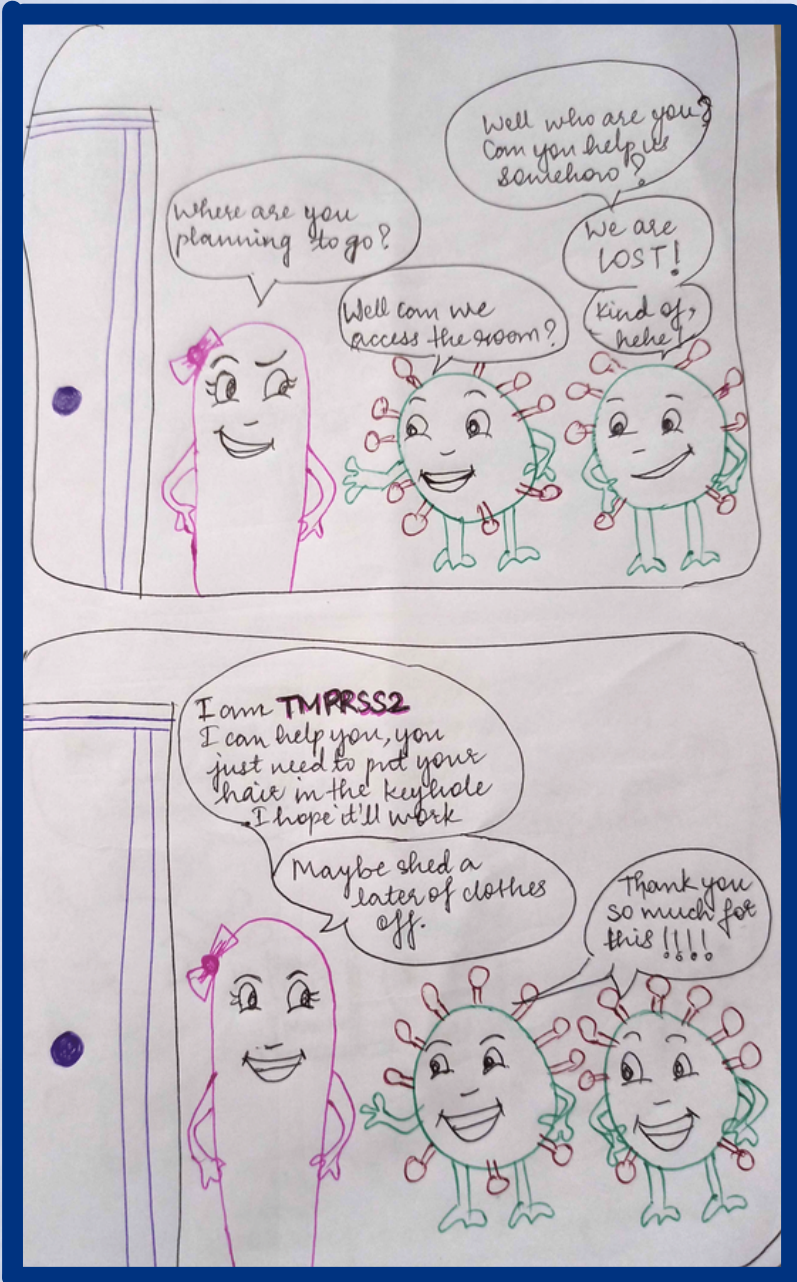 Where are you
planning to go?
Well can we
access the room?
Well who are you?
Can you help us
somehow?
We are
LOST!
Kind of,
hehe!
I am TMPRSS2
I can help you, you
just need to put your
hair in the keyhole
.I hope it'll work
Maybe shed a
later of clothes
off.
Thank you
so much for
this !!!!